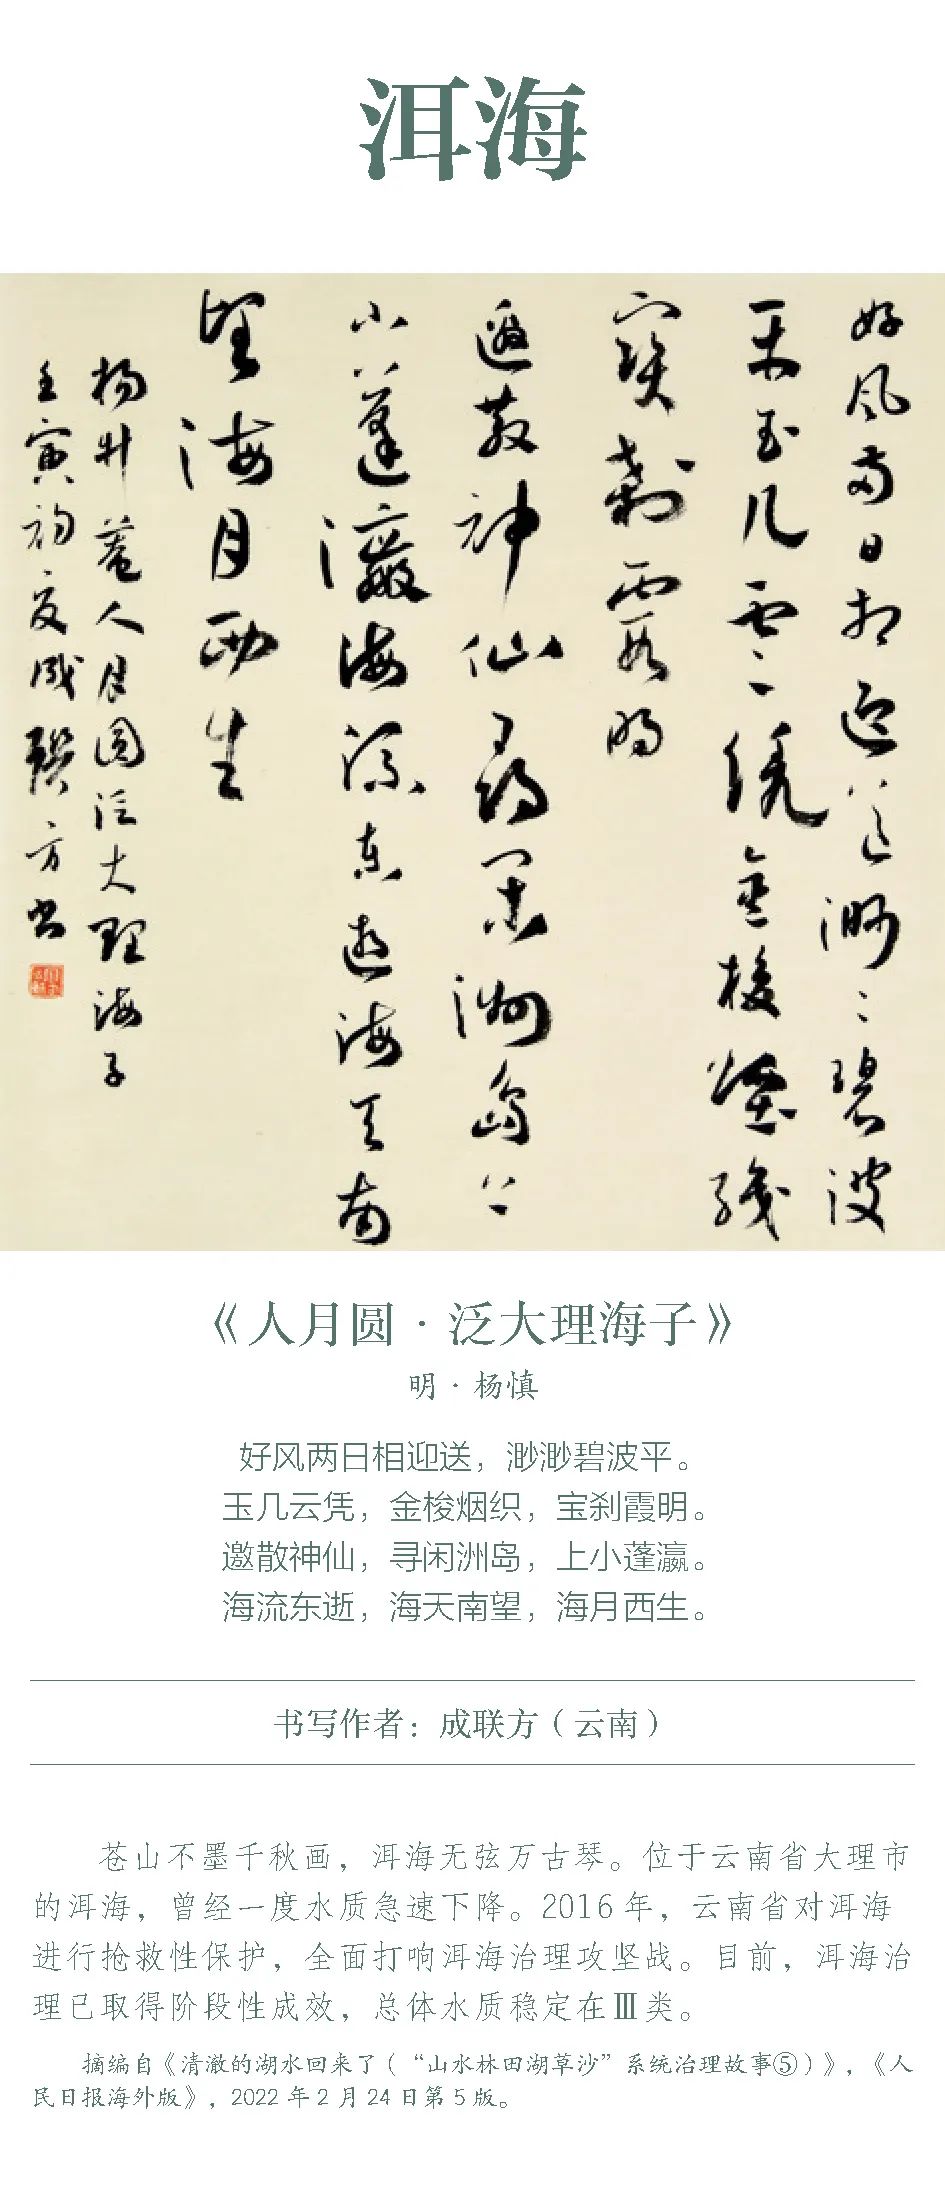 洱海
好風兩日相迎送渺渺碧波
平玉几雲凭金梭煙織
寶刹霞明
邀散神仙尋閑洲島上
小蓬瀛海流東逝海天南
望海月西生
楊升菴人月圓泛大理海子
壬寅初夏成联方书
《人月圆·泛大理海子》
明·杨慎
好风两日相迎送，渺渺碧波平。
玉几云凭，金梭烟织，宝刹霞明。
邀散神仙，寻闲洲岛，上小蓬瀛。
海流东逝，海天南望，海月西生。
书写作者：成联方（云南）
苍山不墨千秋画，洱海无弦万古琴。位于云南省大理市
的洱海，曾经一度水质急速下降。2016 年，云南省对洱海
进行抢救性保护，全面打响洱海治理攻坚战。目前，洱海治
理已取得阶段性成效，总体水质稳定在Ⅲ类。
摘编自《清澈的湖水回来了（“山水林田湖草沙”系统治理故事⑤）》，《人
民日报海外版》，2022 年 2 月 24 日第 5 版。